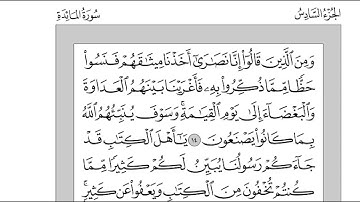 الجزء السادس
سورة المائدة
وَمِنَ ٱلَّذِينَ قَالُوٓا۟ إِنَّا نَصَـٰرَىٰٓ أَخَذْنَا مِيثَـٰقَهُمْ فَنَسُوا۟
حَظًّا مِّمَّا ذُكِّرُوا۟ بِهِۦ فَأَغْرَيْنَا بَيْنَهُمُ ٱلْعَدَاوَةَ
وَٱلْبَغْضَآءَ إِلَىٰ يَوْمِ ٱلْقِيَـٰمَةِ ۚ وَسَوْفَ يُنَبِّئُهُمُ ٱللَّهُ
بِمَا كَانُوا۟ يَصْنَعُونَ ١٤ يَـٰٓأَهْلَ ٱلْكِتَـٰبِ قَدْ
جَآءَكُمْ رَسُولُنَا يُبَيِّنُ لَكُمْ كَثِيرًا مِّمَّا
كُنتُمْ تُخْفُونَ مِنَ ٱلْكِتَـٰبِ وَيَعْفُوا۟ عَن كَثِيرٍ ۚ